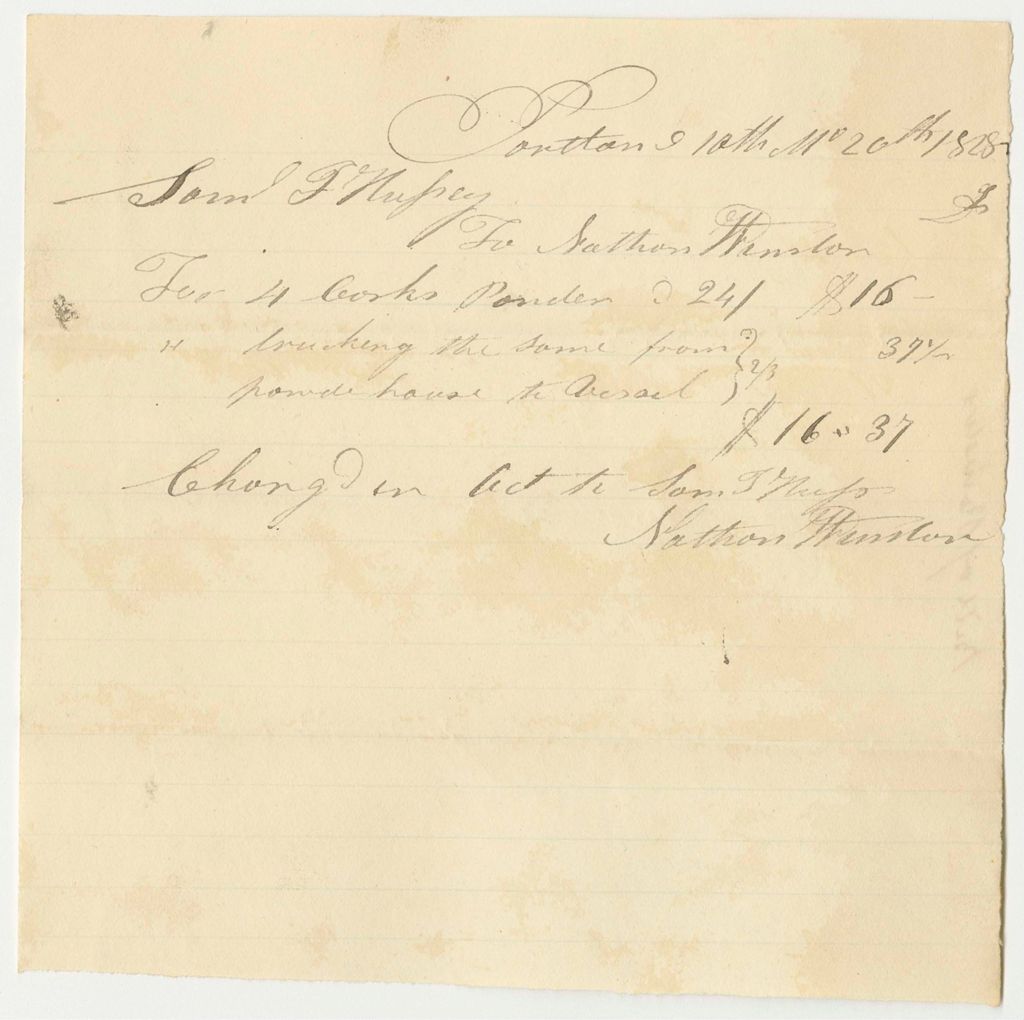 Portland 10th Mo 20th 1828
Saml F Hussey Dr
To Nathan Winslow
For 4 Casks Powder @ 24/ $16 –
" trucking the same from } 2/3 37½
powde house to Vessel
$16 " 37
Chargd in Act to Saml F Huss
Nathan Winslow